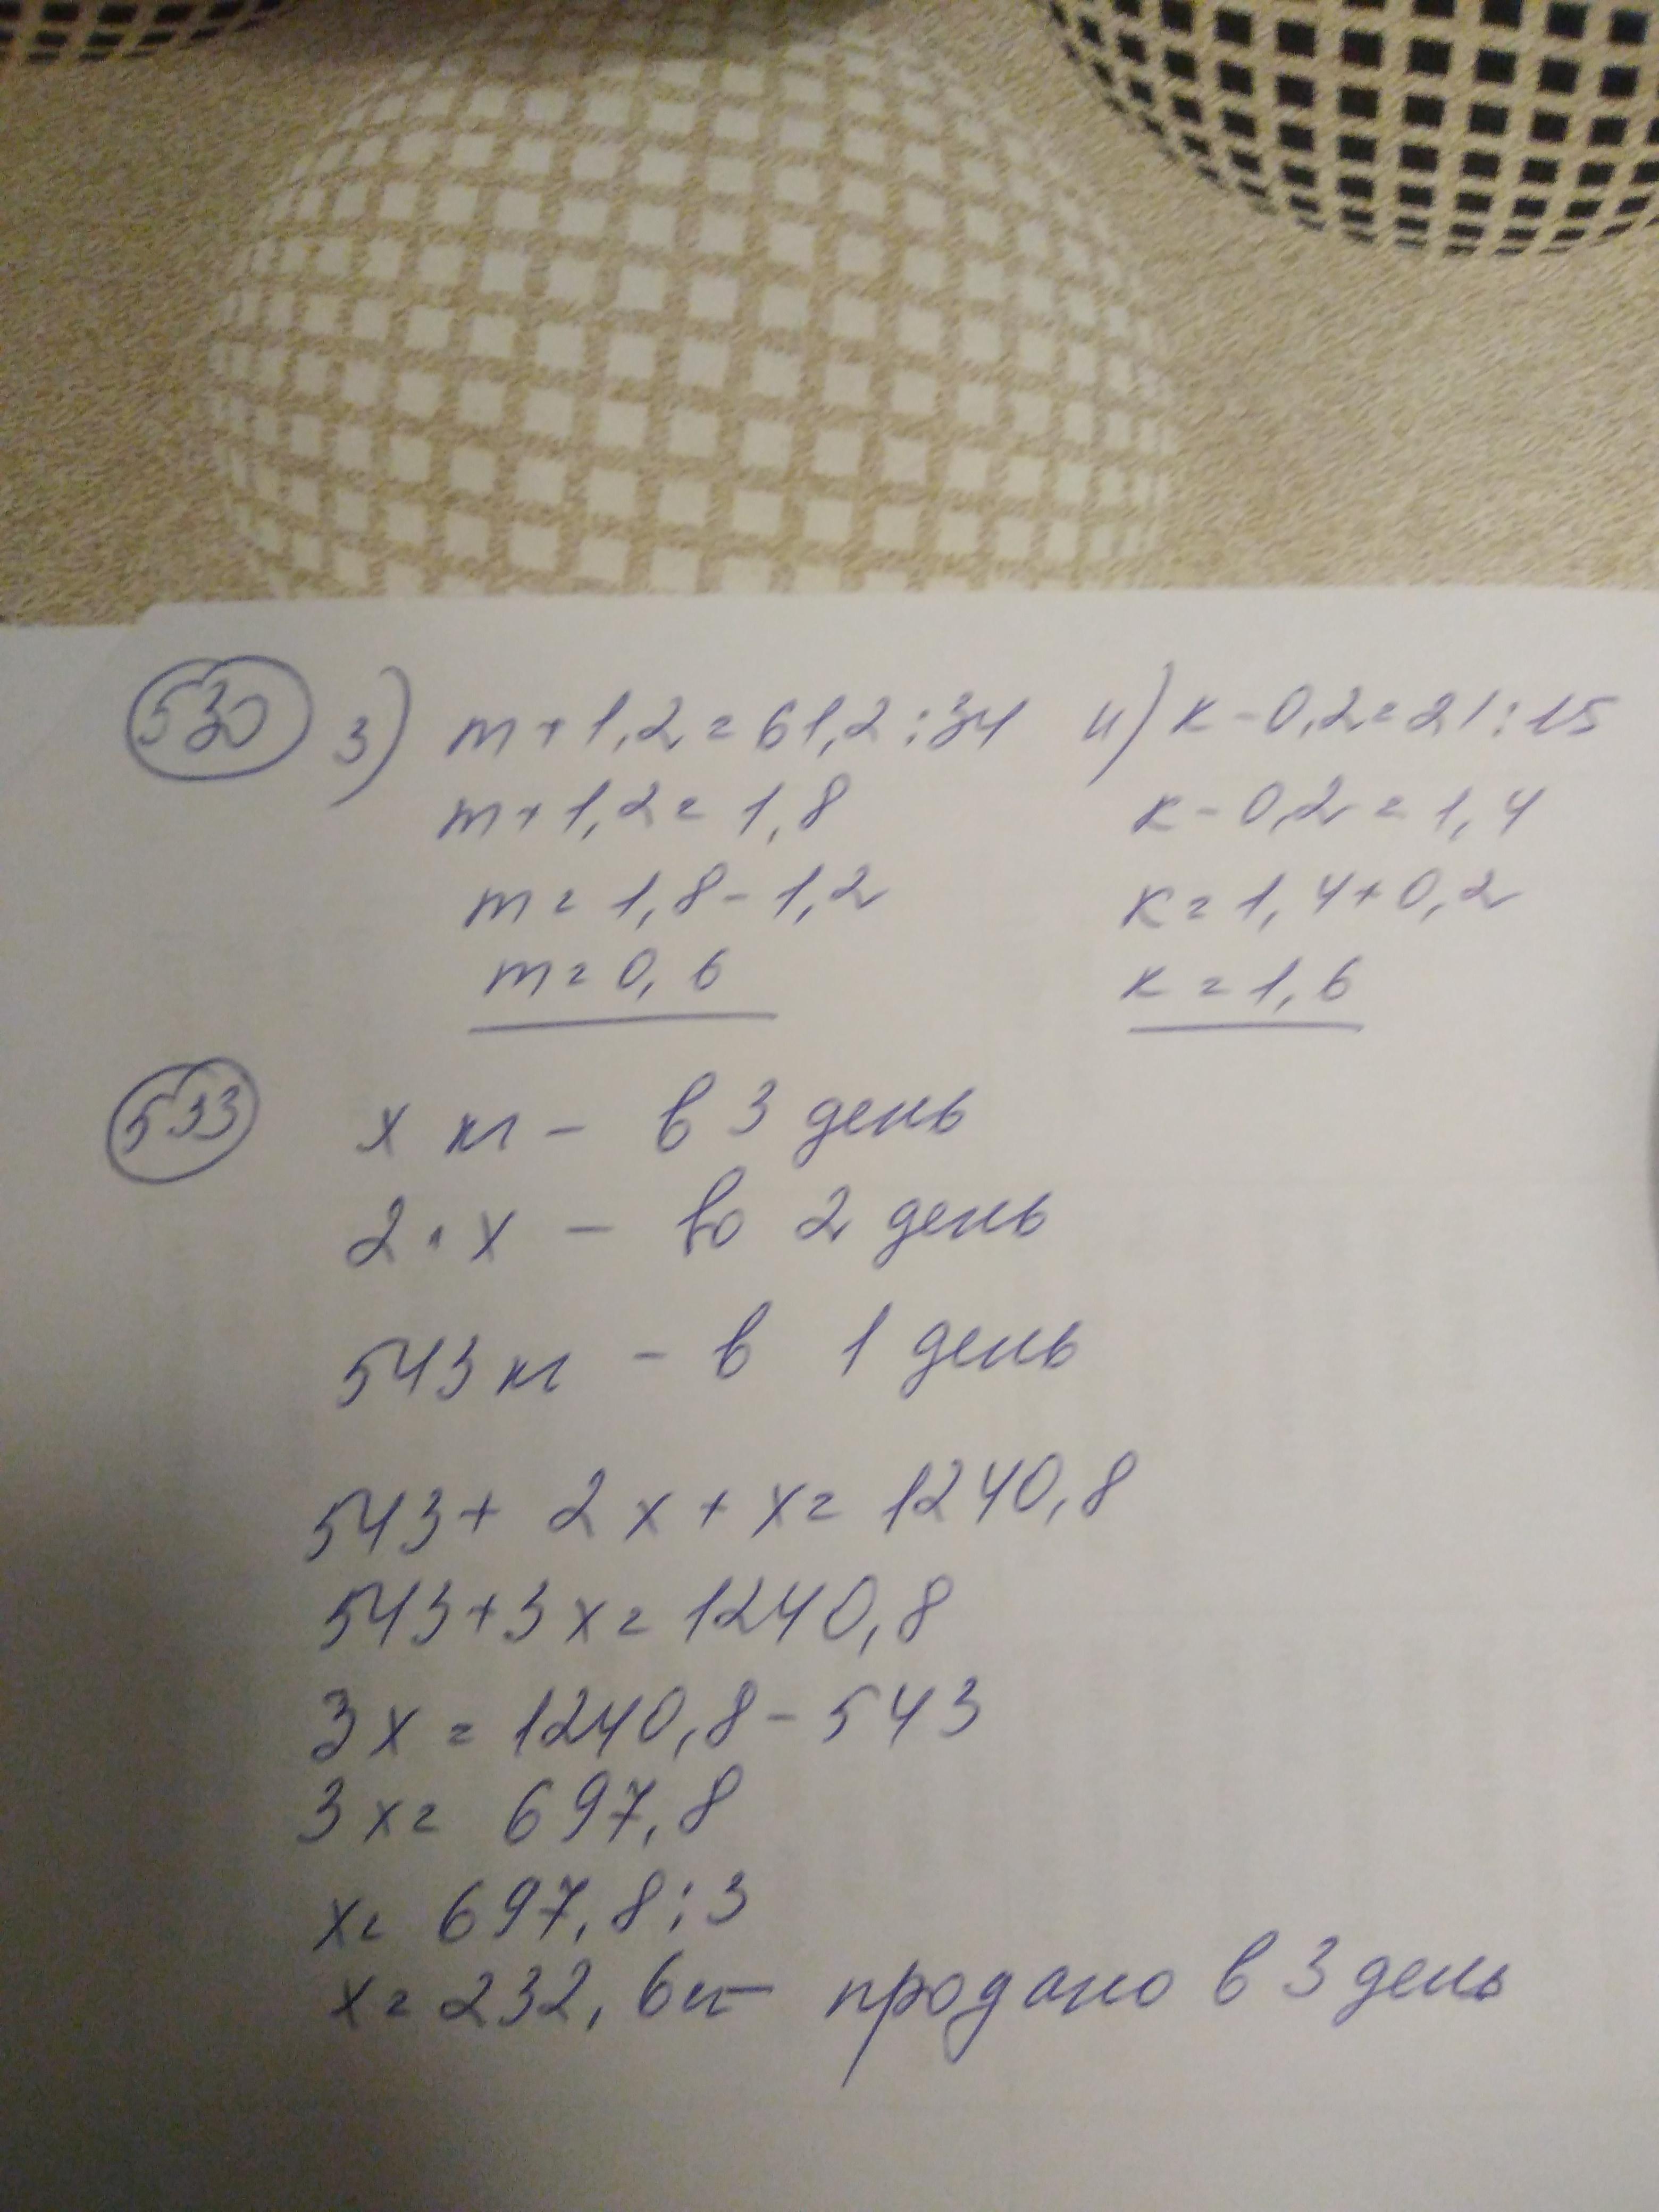 530 з) m + 1,2 = 61,2 : 34 и) к - 0,2 = 21 : 15
m + 1,2 = 1,8 к - 0,2 = 1,4
m = 1,8 - 1,2 к = 1,4 + 0,2
m = 0,6 к = 1,6
533 х кг - в 3 день
2 · х - во 2 день
543 кг - в 1 день
543 + 2х + х = 1240,8
543 + 3х = 1240,8
3х = 1240,8 - 543
3х = 697,8
х = 697,8 : 3
х = 232,6 кг - продано в 3 день